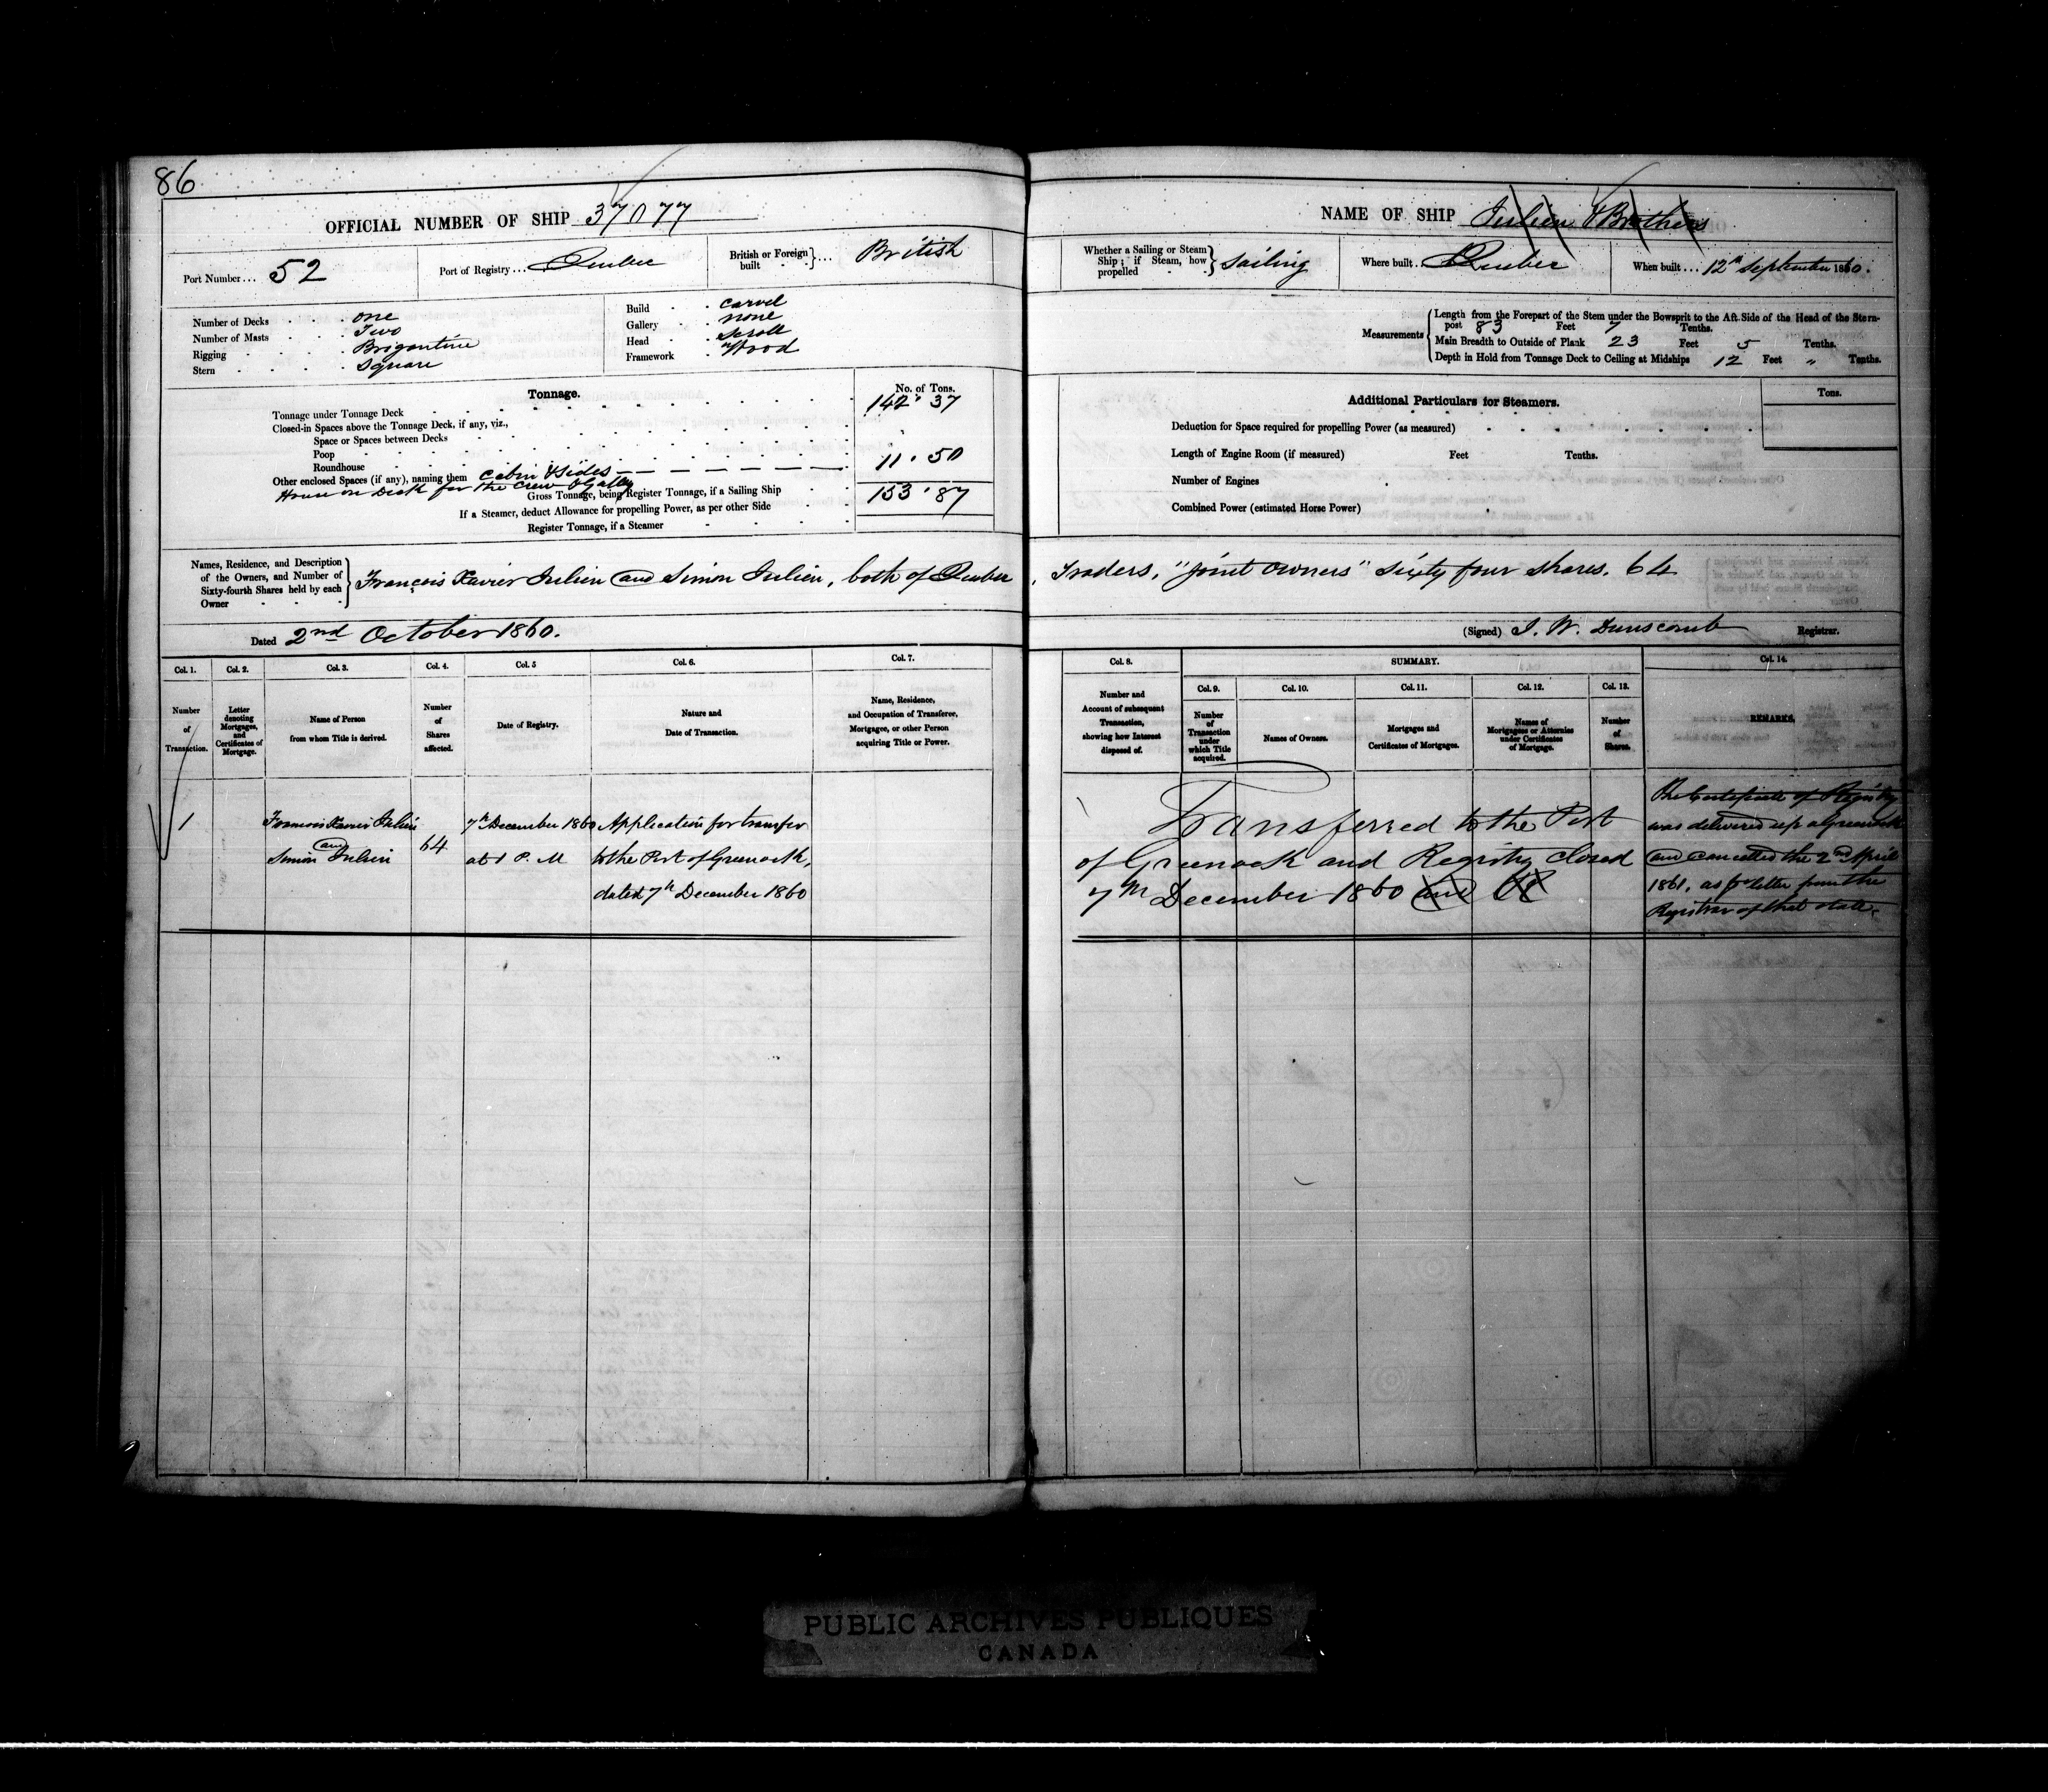 86
OFFICIAL NUMBER OF SHIP 37077
Port Number... 52
Port of Registry... Quebec
British or Foreign built } ... British
Number of Decks . . . one
Number of Masts . . . Two
Rigging . . . Brigantine
Stern . . . . Square
Build . . carvel
Gallery . . none
Head . . Scroll
Framework . Wood
Tonnage.
No. of Tons.
Tonnage under Tonnage Deck 142.37
Closed-in Spaces above the Tonnage Deck, if any, viz.,
Space or Spaces between Decks
Poop
Roundhouse
Other enclosed Spaces (if any), naming them Cabin & Sides 11.50
House on Deck for the Crew & Galley
Gross Tonnage, being Register Tonnage, if a Sailing Ship 153.87
If a Steamer, deduct Allowance for propelling Power, as per other Side
Register Tonnage, if a Steamer
Names, Residence, and Description of the Owners, and Number of Sixty-fourth Shares held by each Owner } François Xavier Julien and Simon Julien, both of Quebec
Dated 2nd October 1860.
Col. 1. Col. 2. Col. 3. Col. 4. Col. 5 Col. 6. Col. 7.
Number of Transaction.
Letter denoting Mortgages, and Certificates of Mortgage.
Name of Person from whom Title is derived.
Number of Shares affected.
Date of Registry.
Nature and Date of Transaction.
Name, Residence, and Occupation of Transferee, Mortgagee, or other Person acquiring Title or Power.
1
Francois Xavier Julien
and
Simon Julien
64
7th December 1860
at 1 P. M
Application for transfer
to the Port of Greenock,
dated 7th December 1860
NAME OF SHIP Julien & Brothers
Whether a Sailing or Steam Ship; if Steam, how propelled } Sailing
Where built . Quebec
When built ... 12th September 1860.
Measurements
Length from the Forepart of the Stem under the Bowsprit to the Aft Side of the Head of the Stern-
post 83 Feet 7 Tenths.
Main Breadth to Outside of Plank 23 Feet 5 Tenths.
Depth in Hold from Tonnage Deck to Ceiling at Midships 12 Feet " Tenths.
Additional Particulars for Steamers.
Tons.
Deduction for Space required for propelling Power (as measured)
Length of Engine Room (if measured) Feet Tenths.
Number of Engines
Combined Power (estimated Horse Power)
, Traders, "joint owners" Sixty four shares. 64
(Signed) J. W. Dunscomb Registrar.
Col. 8. SUMMARY. Col. 14.
Col. 9. Col. 10. Col. 11. Col. 12. Col. 13.
Number and Account of subsequent Transaction, showing how Interest disposed of.
Number of Transaction under which Title acquired.
Names of Owners.
Mortgages and Certificates of Mortgages.
Names of Mortgagees or Attornies under Certificates of Mortgage.
Number of Shares.
REMARKS.
Transferred to the Port
of Greenock and Registry Closed
7th December 1860 and
The Certificate of Registry
was delivered up a Greenock
and cancelled the 2nd April
1861, as pr letter from the
Registrar of that date.
PUBLIC ARCHIVES PUBLIQUES
CANADA